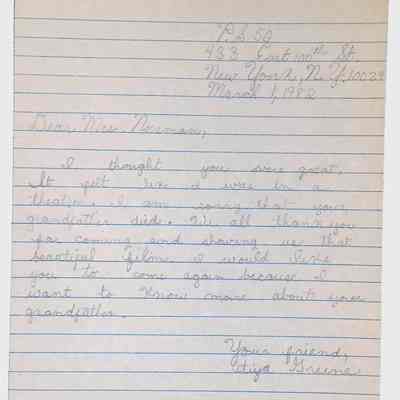 P.S. 50
433 East 100th St.
New York, N.Y. 10029
March 1, 1982
Dear Mrs. Norman,
I thought you were great.
It felt like I was in a
theater. I am sorry that your
grandfather died. We all thank you
for coming and showing us that
beautiful film. I would like
you to come again because I
want to know more about your
grandfather.
Your friend,
Greene